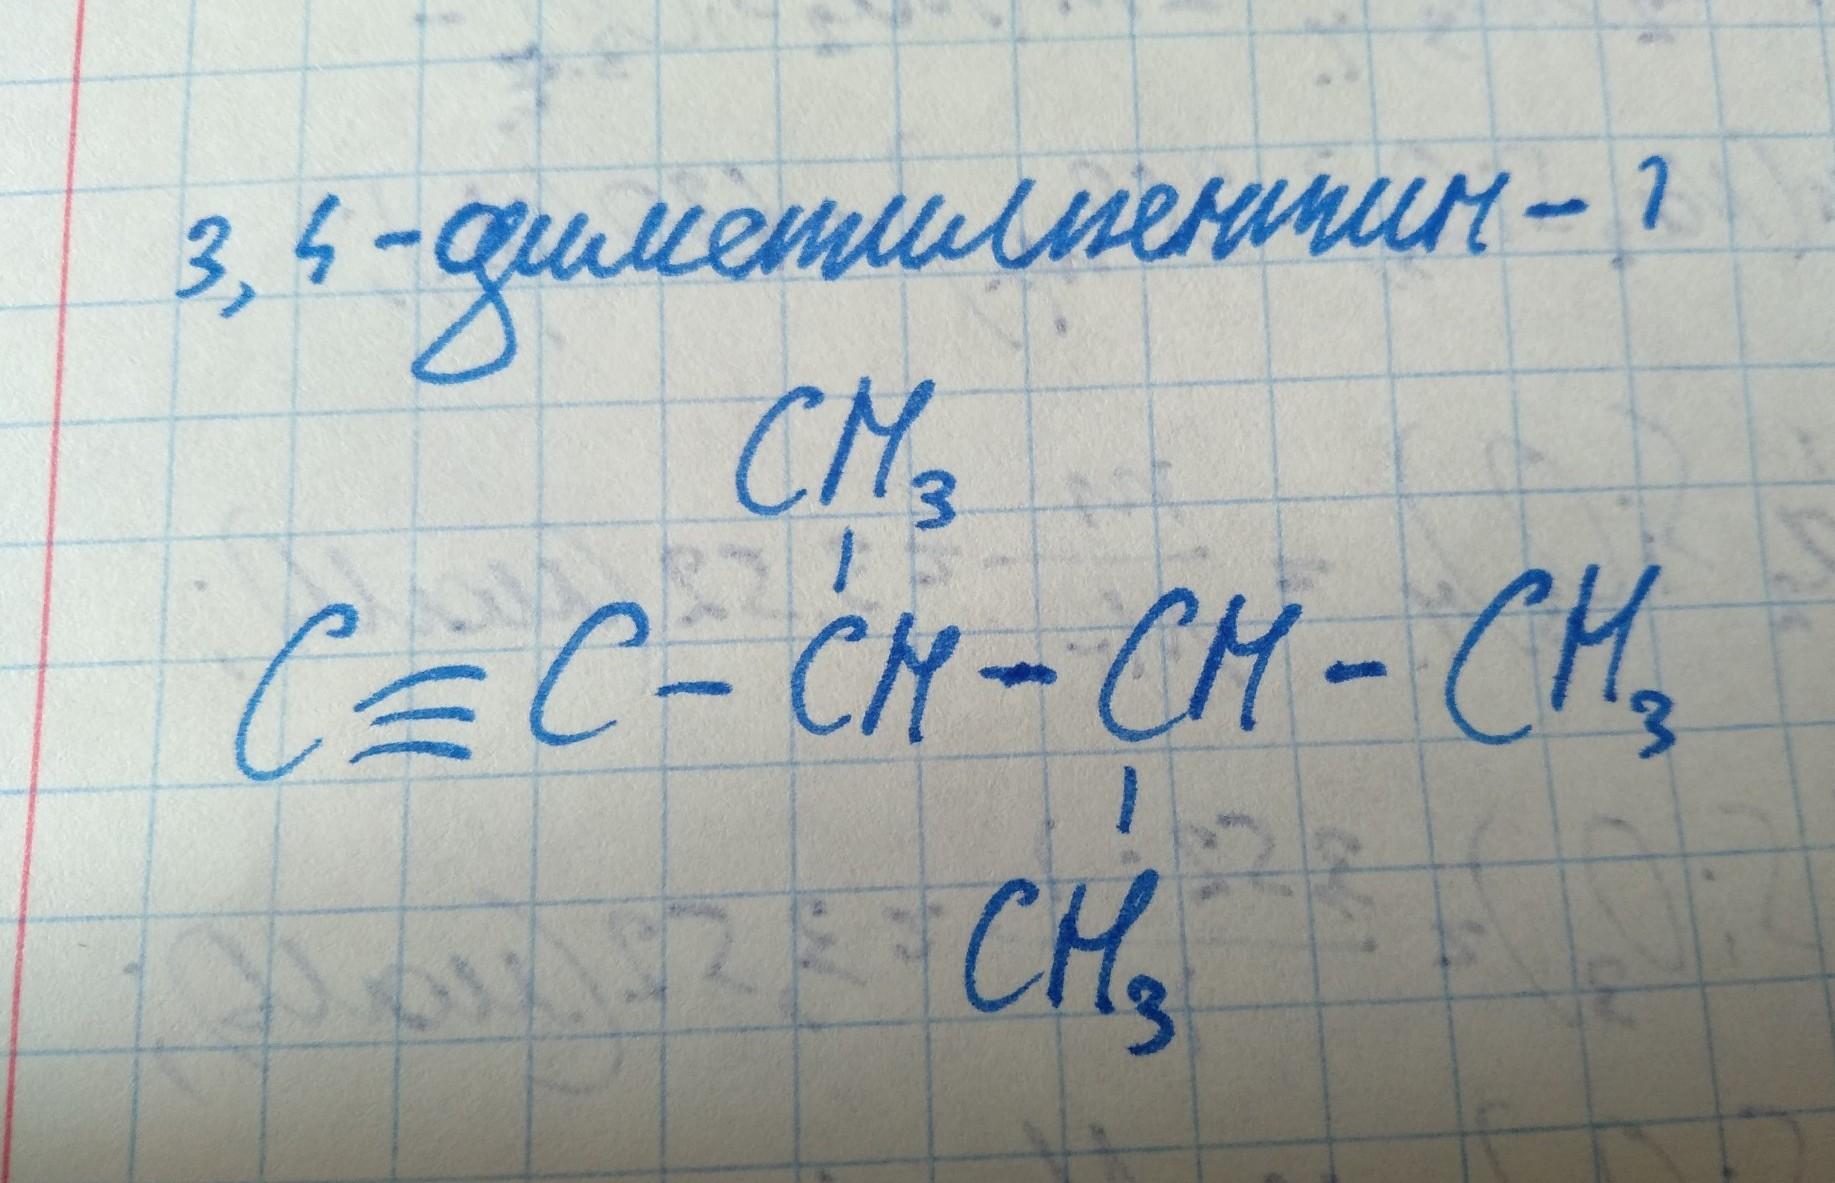 3,4-диметилпентин-1
CH₃
C≡C-CH-CH-CH₃
CH₃